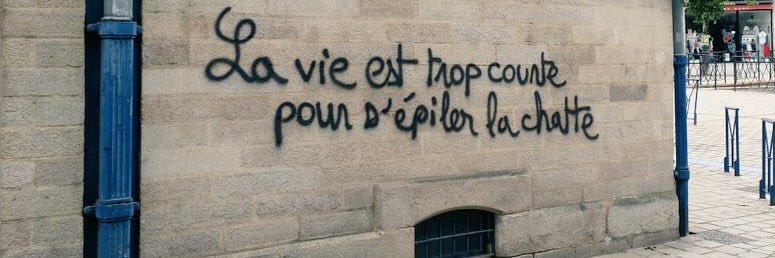 La vie est trop courte
pour s'épiler la chatte